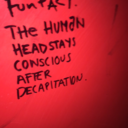 FUN FACT:
THE HUMAN
HEAD STAYS
CONSCIOUS
AFTER
DECAPITATION.